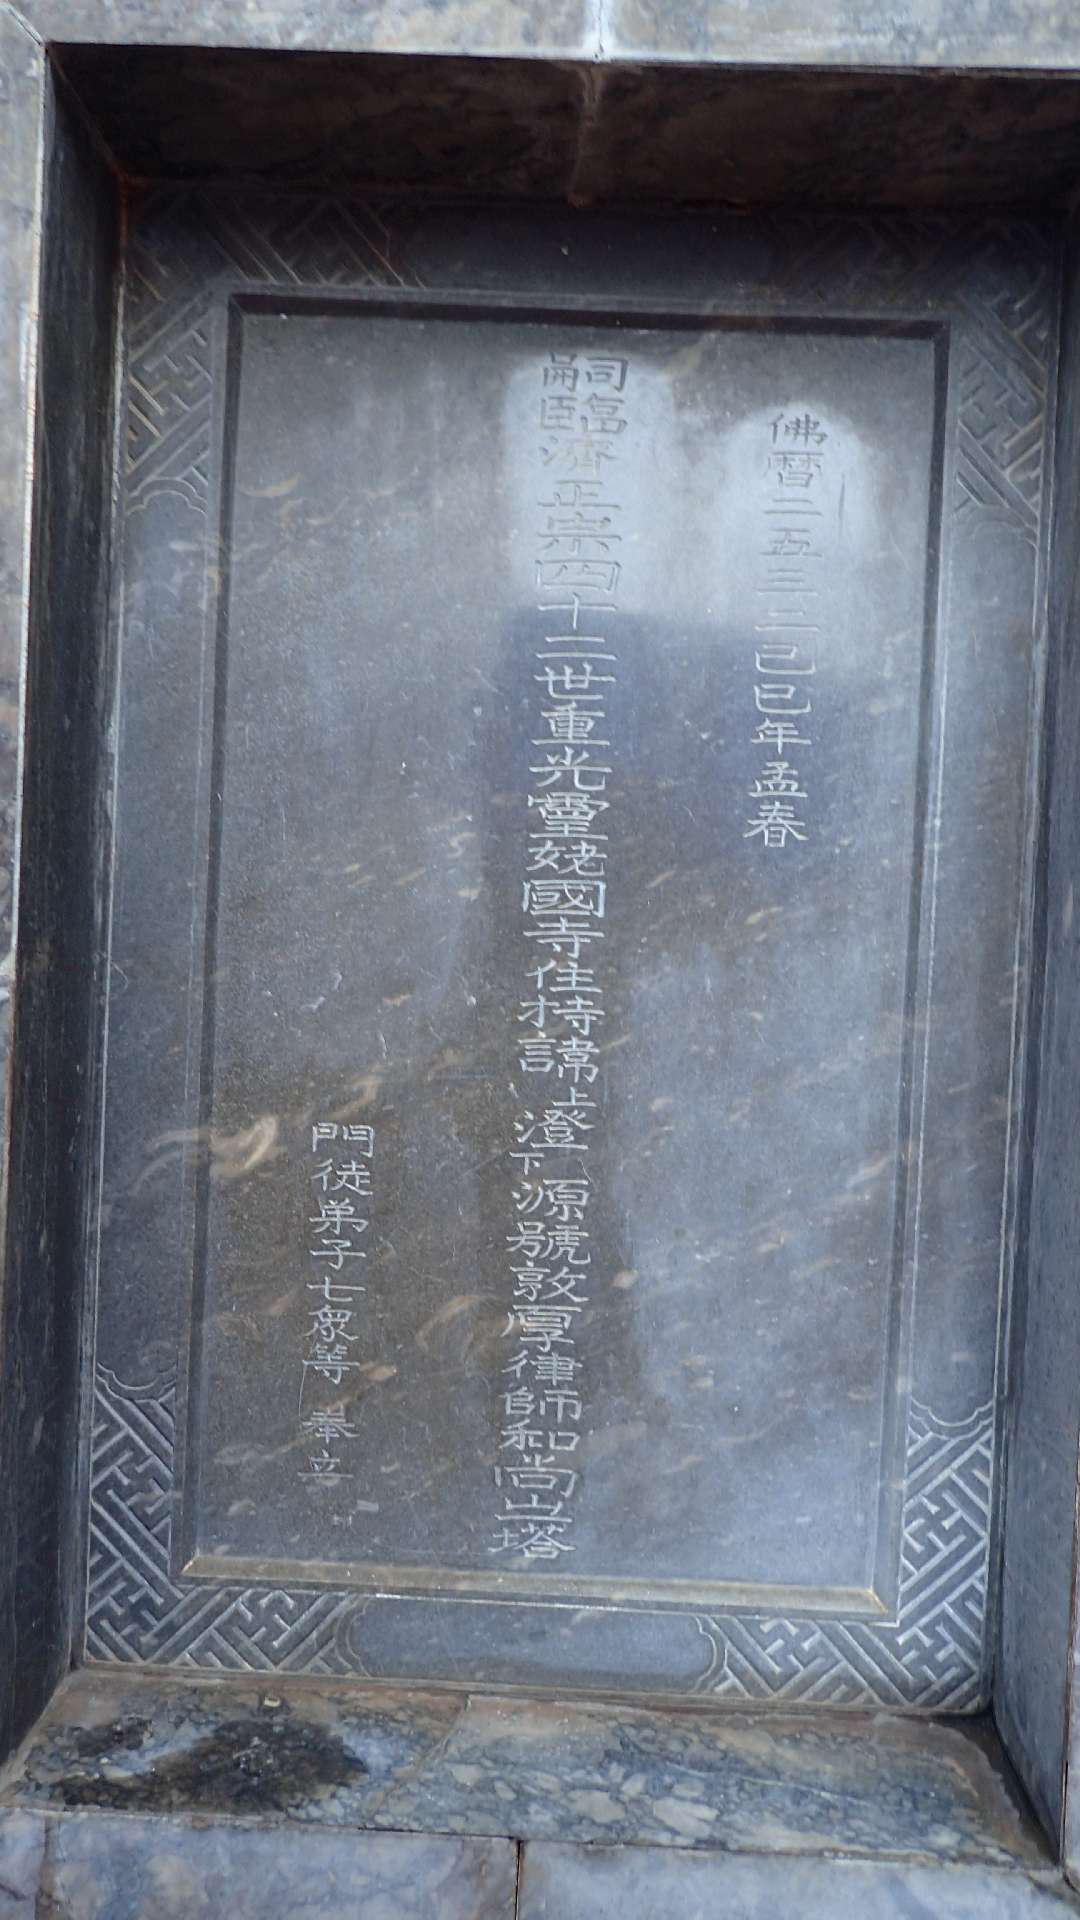 佛曆二五三二己巳年孟春
嗣臨濟正宗四十二世重光靈姥國寺住持諱上澄下源號敦厚律師和尚之塔
門徒弟子七眾等 奉立